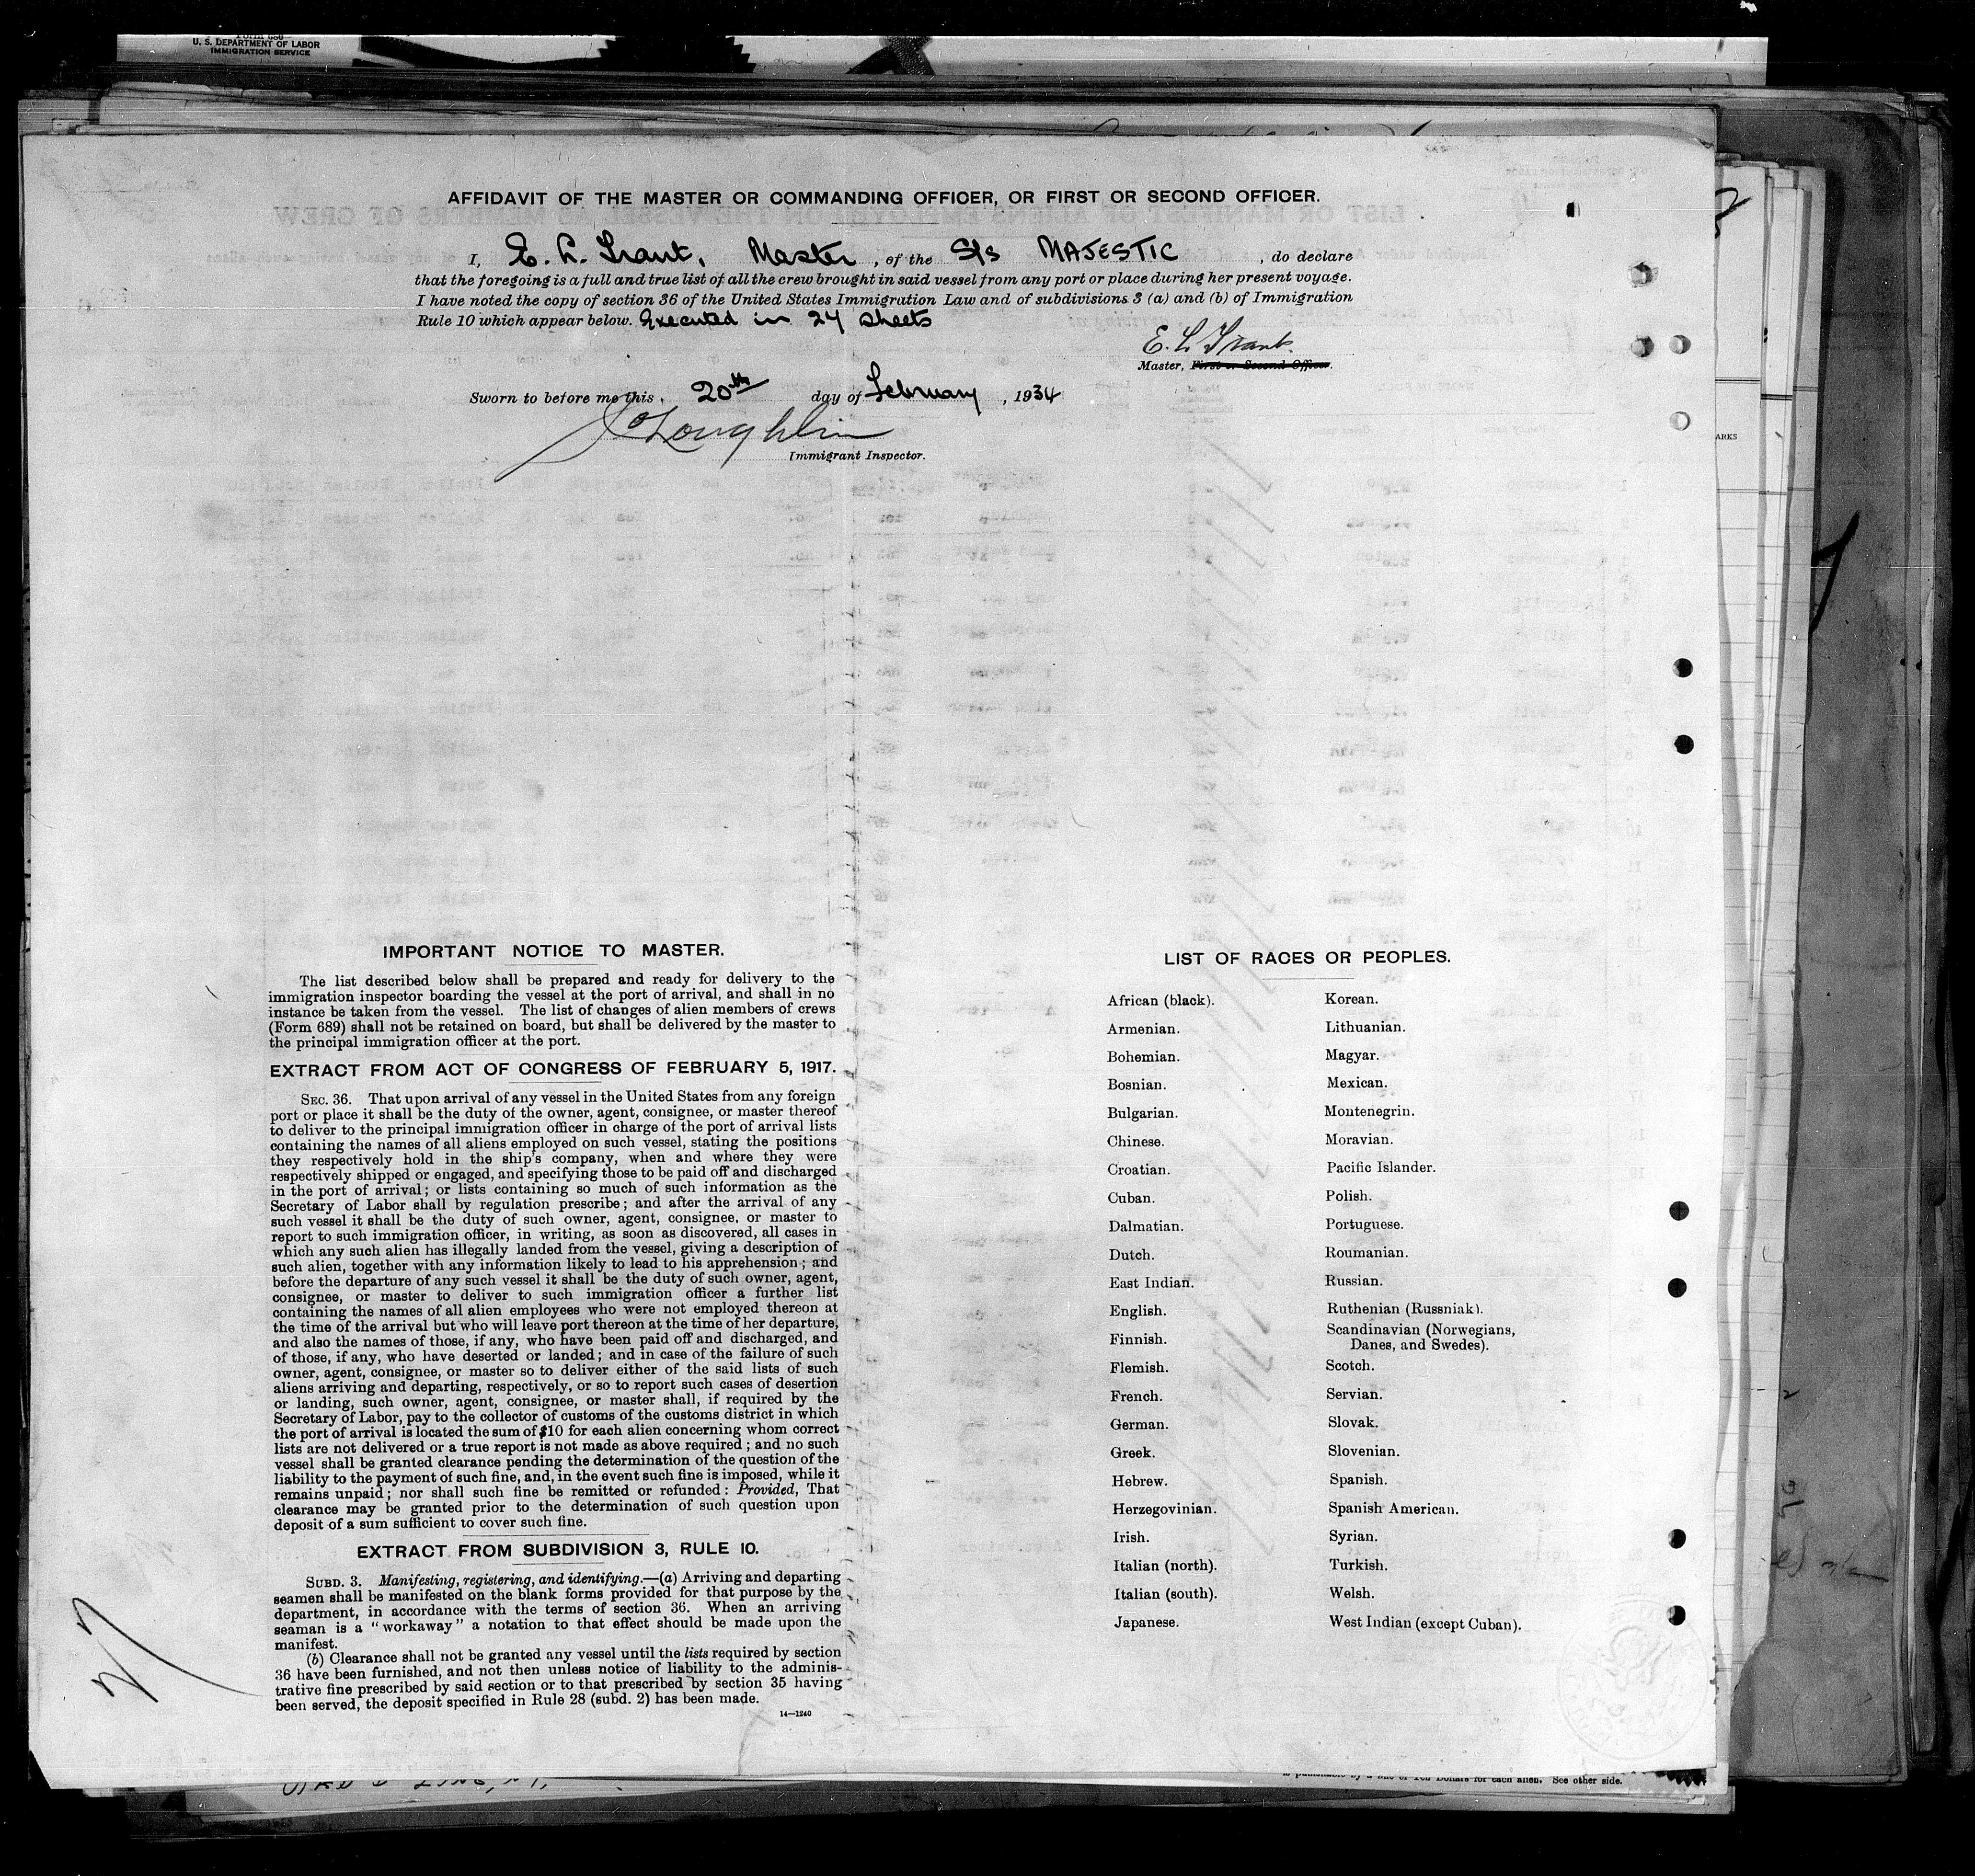 U. S. DEPARTMENT OF LABOR
IMMIGRATION SERVICE
AFFIDAVIT OF THE MASTER OR COMMANDING OFFICER, OR FIRST OR SECOND OFFICER.
I, E. L. Trant, Master, of the S/s MAJESTIC, do declare
that the foregoing is a full and true list of all the crew brought in said vessel from any port or place during her present voyage.
I have noted the copy of section 36 of the United States Immigration Law and of subdivisions 3 (a) and (b) of Immigration
Rule 10 which appear below. Executed in 24 sheets
E. L. Trant.
Master, First or Second Officer.
Sworn to before me this 20th day of February, 1934
Immigrant Inspector.
ARKS
IMPORTANT NOTICE TO MASTER.
The list described below shall be prepared and ready for delivery to the
immigration inspector boarding the vessel at the port of arrival, and shall in no
instance be taken from the vessel. The list of changes of alien members of crews
(Form 689) shall not be retained on board, but shall be delivered by the master to
the principal immigration officer at the port.
EXTRACT FROM ACT OF CONGRESS OF FEBRUARY 5, 1917.
SEC. 36. That upon arrival of any vessel in the United States from any foreign
port or place it shall be the duty of the owner, agent, consignee, or master thereof
to deliver to the principal immigration officer in charge of the port of arrival lists
containing the names of all aliens employed on such vessel, stating the positions
they respectively hold in the ship's company, when and where they were
respectively shipped or engaged, and specifying those to be paid off and discharged
in the port of arrival; or lists containing so much of such information as the
Secretary of Labor shall by regulation prescribe; and after the arrival of any
such vessel it shall be the duty of such owner, agent, consignee, or master to
report to such immigration officer, in writing, as soon as discovered, all cases in
which any such alien has illegally landed from the vessel, giving a description of
such alien, together with any information likely to lead to his apprehension; and
before the departure of any such vessel it shall be the duty of such owner, agent,
consignee, or master to deliver to such immigration officer a further list
containing the names of all alien employees who were not employed thereon at
the time of the arrival but who will leave port thereon at the time of her departure,
and also the names of those, if any, who have been paid off and discharged, and
of those, if any, who have deserted or landed; and in case of the failure of such
owner, agent, consignee, or master so to deliver either of the said lists of such
aliens arriving and departing, respectively, or so to report such cases of desertion
or landing, such owner, agent, consignee, or master shall, if required by the
Secretary of Labor, pay to the collector of customs of the customs district in which
the port of arrival is located the sum of $10 for each alien concerning whom correct
lists are not delivered or a true report is not made as above required; and no such
vessel shall be granted clearance pending the determination of the question of the
liability to the payment of such fine, and, in the event such fine is imposed, while it
remains unpaid; nor shall such fine be remitted or refunded: Provided, That
clearance may be granted prior to the determination of such question upon
deposit of a sum sufficient to cover such fine.
EXTRACT FROM SUBDIVISION 3, RULE 10.
SUBD. 3. Manifesting, registering, and identifying.—(a) Arriving and departing
seamen shall be manifested on the blank forms provided for that purpose by the
department, in accordance with the terms of section 36. When an arriving
seaman is a "workaway" a notation to that effect should be made upon the
manifest.
(b) Clearance shall not be granted any vessel until the lists required by section
36 have been furnished, and not then unless notice of liability to the adminis-
trative fine prescribed by said section or to that prescribed by section 35 having
been served, the deposit specified in Rule 28 (subd. 2) has been made.
14—1240
LIST OF RACES OR PEOPLES.
African (black).
Armenian.
Bohemian.
Bosnian.
Bulgarian.
Chinese.
Croatian.
Cuban.
Dalmatian.
Dutch.
East Indian.
English.
Finnish.
Flemish.
French.
German.
Greek.
Hebrew.
Herzegovinian.
Irish.
Italian (north).
Italian (south).
Japanese.
Korean.
Lithuanian.
Magyar.
Mexican.
Montenegrin.
Moravian.
Pacific Islander.
Polish.
Portuguese.
Roumanian.
Russian.
Ruthenian (Russniak).
Scandinavian (Norwegians,
Danes, and Swedes).
Scotch.
Servian.
Slovak.
Slovenian.
Spanish.
Spanish American.
Syrian.
Turkish.
Welsh.
West Indian (except Cuban).
for each alien. See other side.